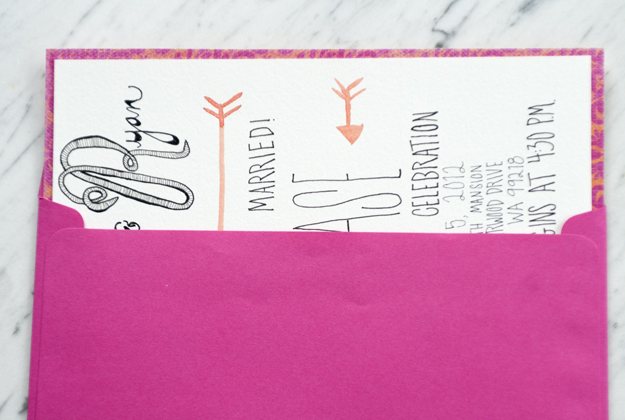 Ryan
&
MARRIED!
ASE
CELEBRATION
5, 2012
TH MANSION
RWOOD DRIVE
WA 99218
GINS AT 4:30 P.M.